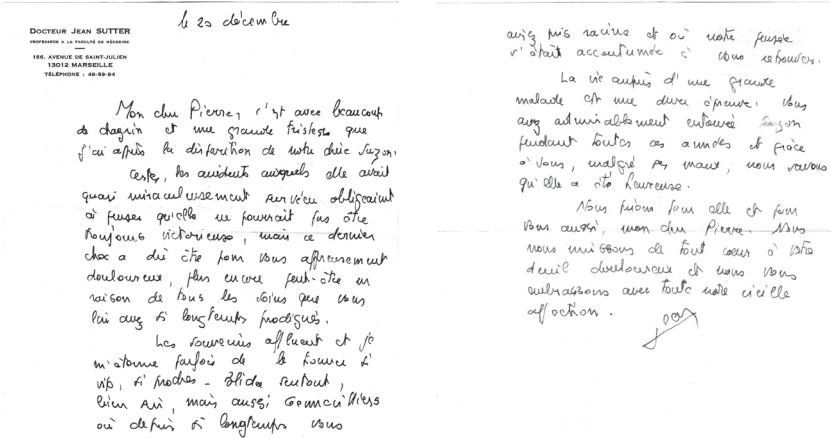 le 20 décembre
DOCTEUR JEAN SUTTER
PROFESSEUR A LA FACULTÉ DE MÉDECINE
156, AVENUE DE SAINT-JULIEN
13012 MARSEILLE
TÉLÉPHONE : 49-59-94
Mon cher Pierre, c'est avec beaucoup
de chagrin et une grande tristesse que
j'ai appris la disparition de notre chère Suzon.
Certes, les accidents auxquels elle avait
quasi miraculeusement survécu obligeaient
à penser qu'elle ne pourrait pas être
toujours victorieuse, mais ce dernier
choc a dû être pour vous affreusement
douloureux, plus encore peut-être en
raison de tous les soins que vous
lui avez si longtemps prodigués.
Les souvenirs affluent et je
m'étonne parfois de les trouver si
vifs, si proches - Blida surtout,
bien sûr, mais aussi
où depuis si longtemps vous
aviez pris racine et où notre pensée
s'était accoutumée à vous retrouver.
La vie auprès d'une grande
malade est une dure épreuve. Vous
avez admirablement entouré Suzon
pendant toutes ces années et grâce
à vous, malgré ses maux, nous savons
qu'elle a été heureuse.
Nous prions pour elle et pour
vous aussi, mon cher Pierre. Nous
nous unissons de tout cœur à votre
deuil douloureux et nous vous
embrassons avec toute notre vieille
affection.
Jean